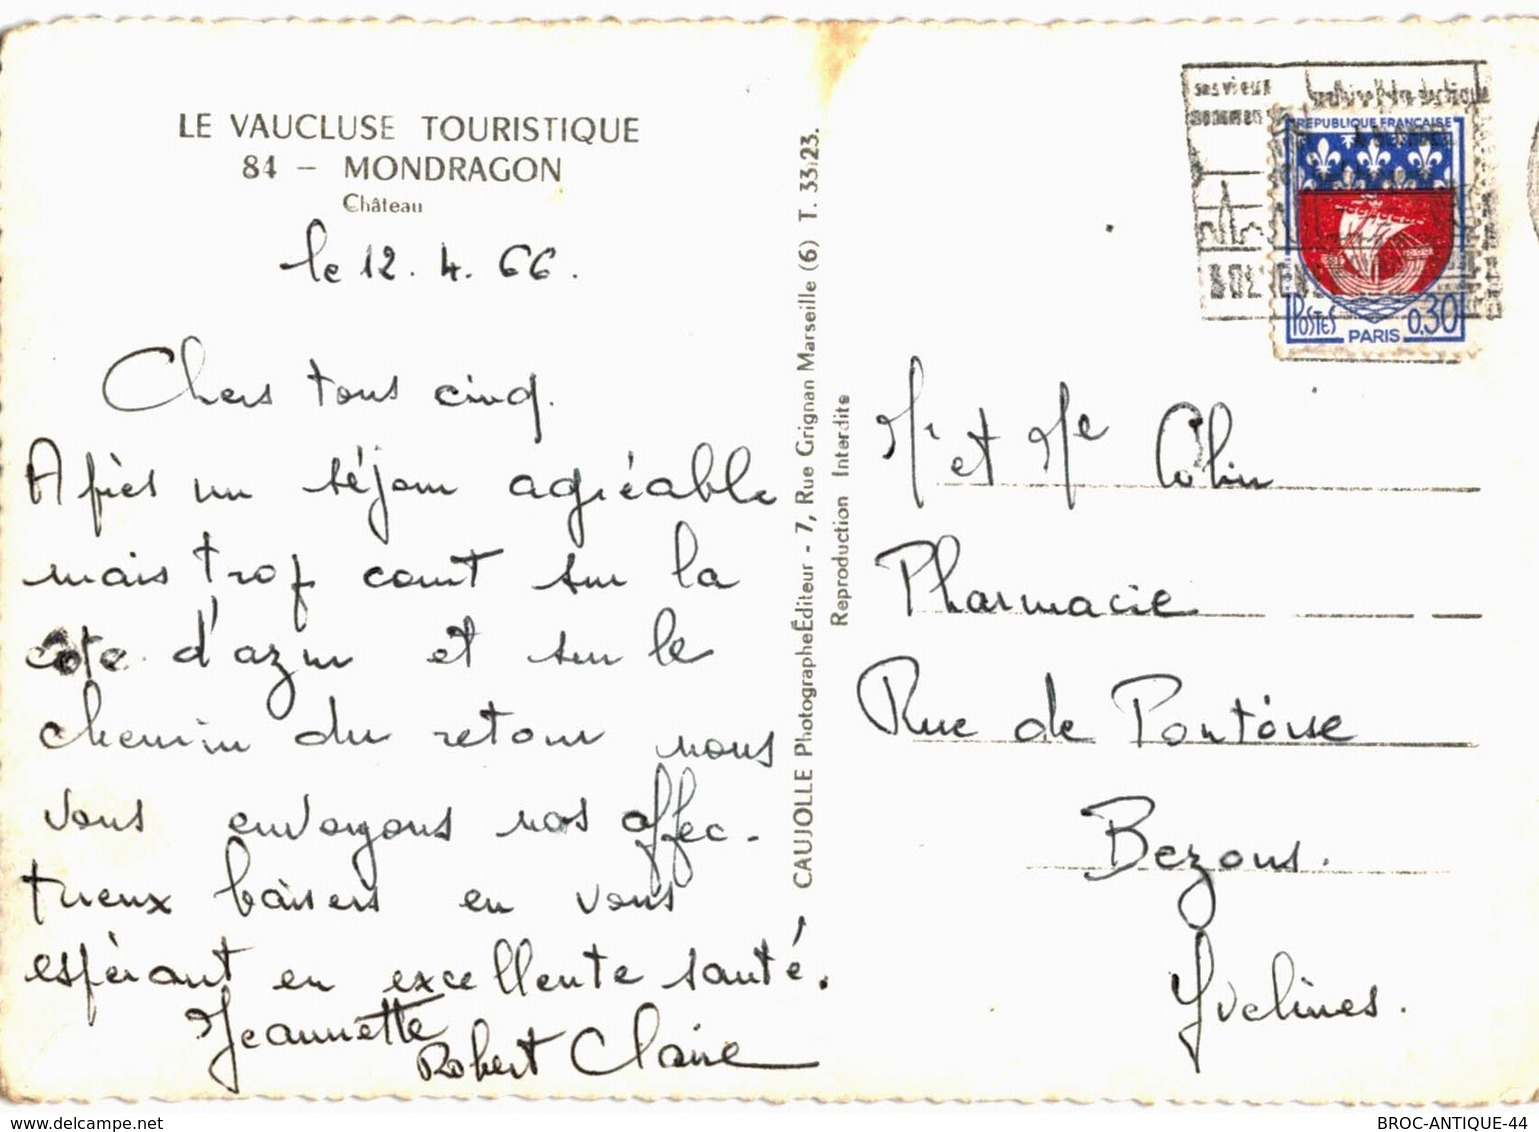 LE VAUCLUSE TOURISTIQUE
84 - MONDRAGON
Château
le 12. 4. 66.
Chers tous cinq.
Après un séjour agréable
mais trop court sur la
côte d'azur et sur le
chemin du retour nous
vous envoyons nos affec-
tueux baisers en vous
espérant en excellente santé.
Jeannette
Robert Claire
CAUJOLLE Photographe Éditeur - 7, Rue Grignan Marseille (6) T. 33.23.
Reproduction Interdite
ses vieux
REPUBLIQUE FRANÇAISE
POSTES PARIS 0,30
Mr et Me Colin
Pharmacie
Rue de Pontoise
Bezons.
Yvelines.
www.delcampe.net
BROC-ANTIQUE-44